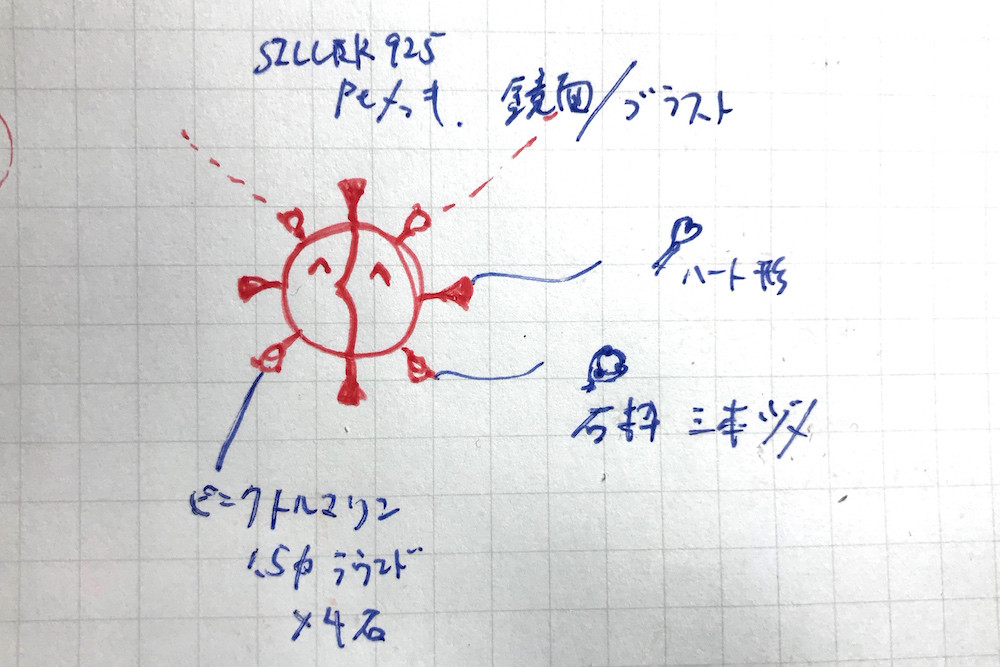 SILVER 925
Ptメッキ. 鏡面/ブラスト
ハート形
石枠 三本ヅメ
ピンクトルマリン
1.5φ ラウンド
×4石